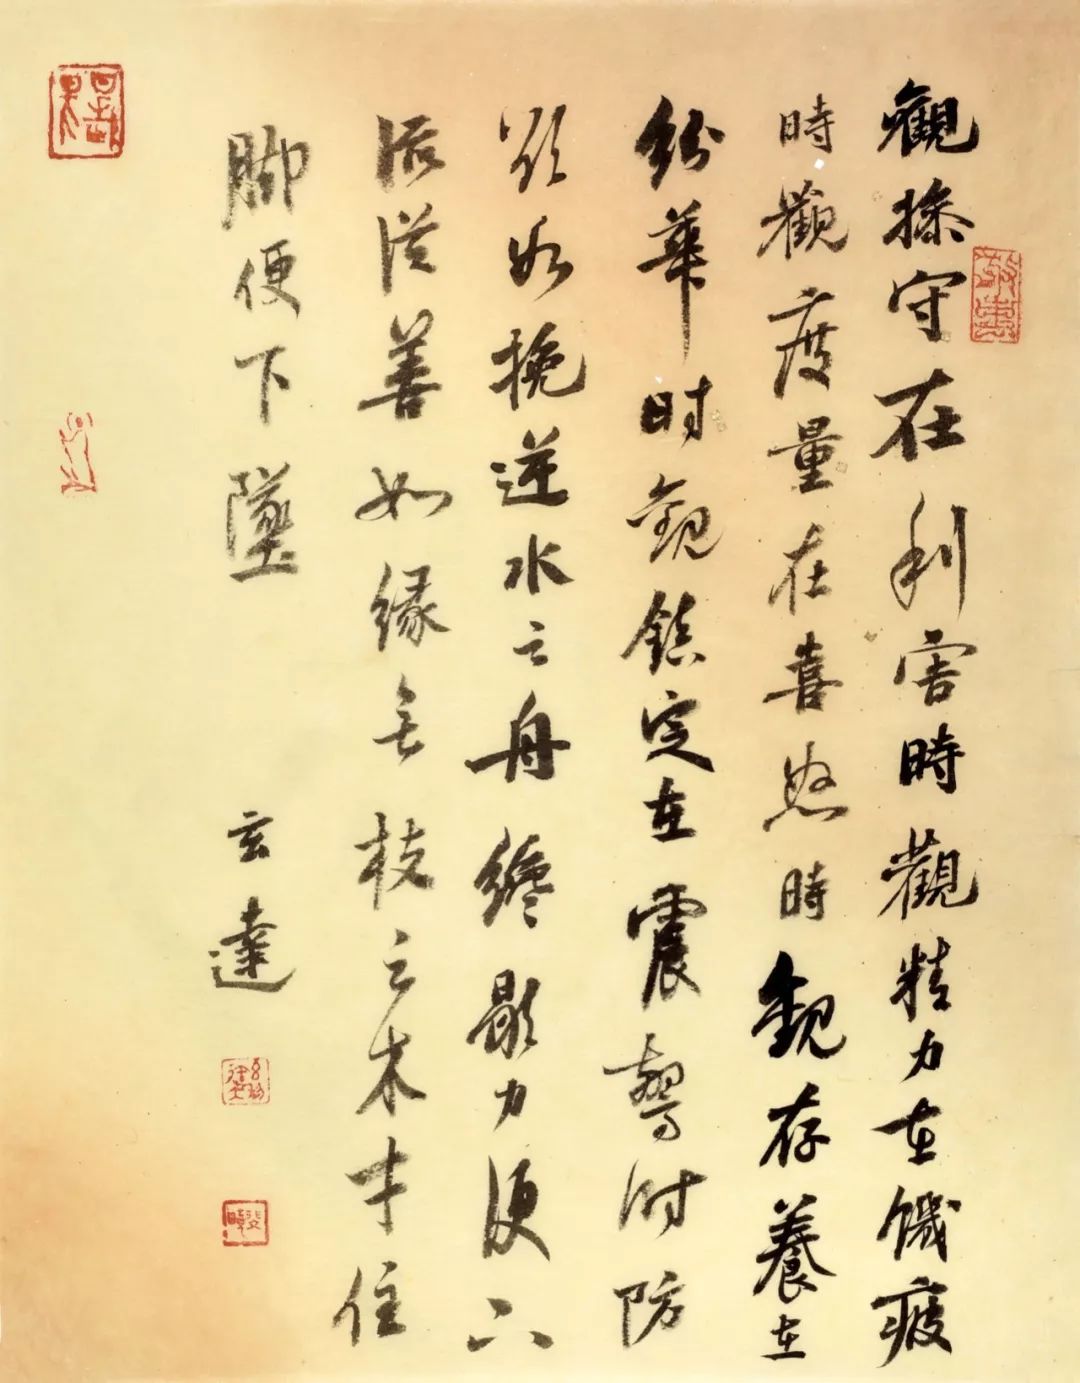 觀操守在利害時觀精力在饑疲
時觀度量在喜怒時觀存養在
紛華时觀鎮定在震驚时防
欲如挽逆水之舟纔歇力便下
流從善如緣無枝之木才住
脚便下墜
玄達